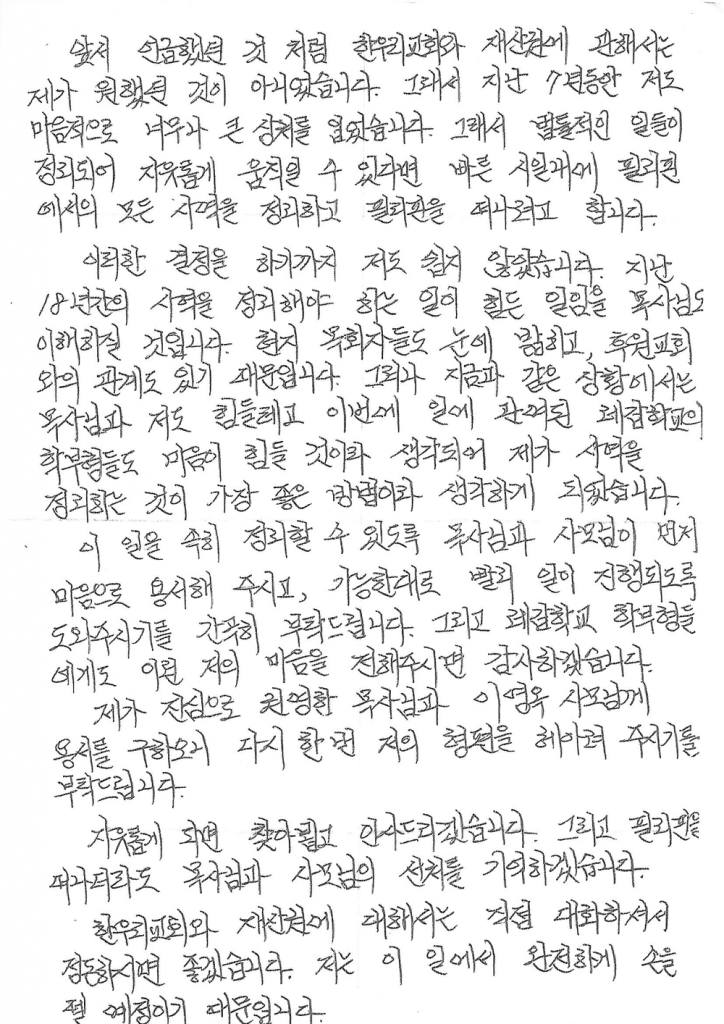 앞서 언급했던 것 처럼 한우리교회와 재산권에 관해서는
제가 원했던 것이 아니었습니다. 그래서 지난 7년동안 저도
마음적으로 너무나 큰 상처를 입었습니다. 그래서 법률적인 일들이
정리되어 자유롭게 움직일 수 있다면 빠른 시일내에 필리핀
에서의 모든 사역을 정리하고 필리핀을 떠나려고 합니다.
이러한 결정을 하기까지 저도 쉽지 않았습니다. 지난
18년간의 사역을 정리해야 하는 일이 힘든 일임을 목사님도
이해하실 것입니다. 현지 목회자들도 눈에 밟히고, 후원교회
와의 관계도 있기 때문입니다. 그러나 지금과 같은 상황에서는
목사님과 저도 힘들테고 이번에 일에 관여된 레감학교의
학부형들도 마음이 힘들 것이라 생각되어 제가 사역을
정리하는 것이 가장 좋은 방법이라 생각하게 되었습니다.
이 일을 속히 정리할 수 있도록 목사님과 사모님이 먼저
마음으로 용서해 주시고, 가능한대로 빨리 일이 진행되도록
도와주시기를 간곡히 부탁드립니다. 그리고 레감학교 학부형들
에게도 이런 저의 마음을 전해주시면 감사하겠습니다.
제가 진심으로 권영한 목사님과 이영옥 사모님께
용서를 구하오니 다시 한번 저의 형편을 헤아려 주시기를
부탁드립니다.
자유롭게 되면 찾아뵙고 인사드리겠습니다. 그리고 필리핀을
떠나더라도 목사님과 사모님의 선처를 기억하겠습니다.
한우리교회와 재산권에 대해서는 직접 대화하셔서
점동하시면 좋겠습니다. 저는 이 일에서 완전하게 손을
뗄 예정이기 때문입니다.